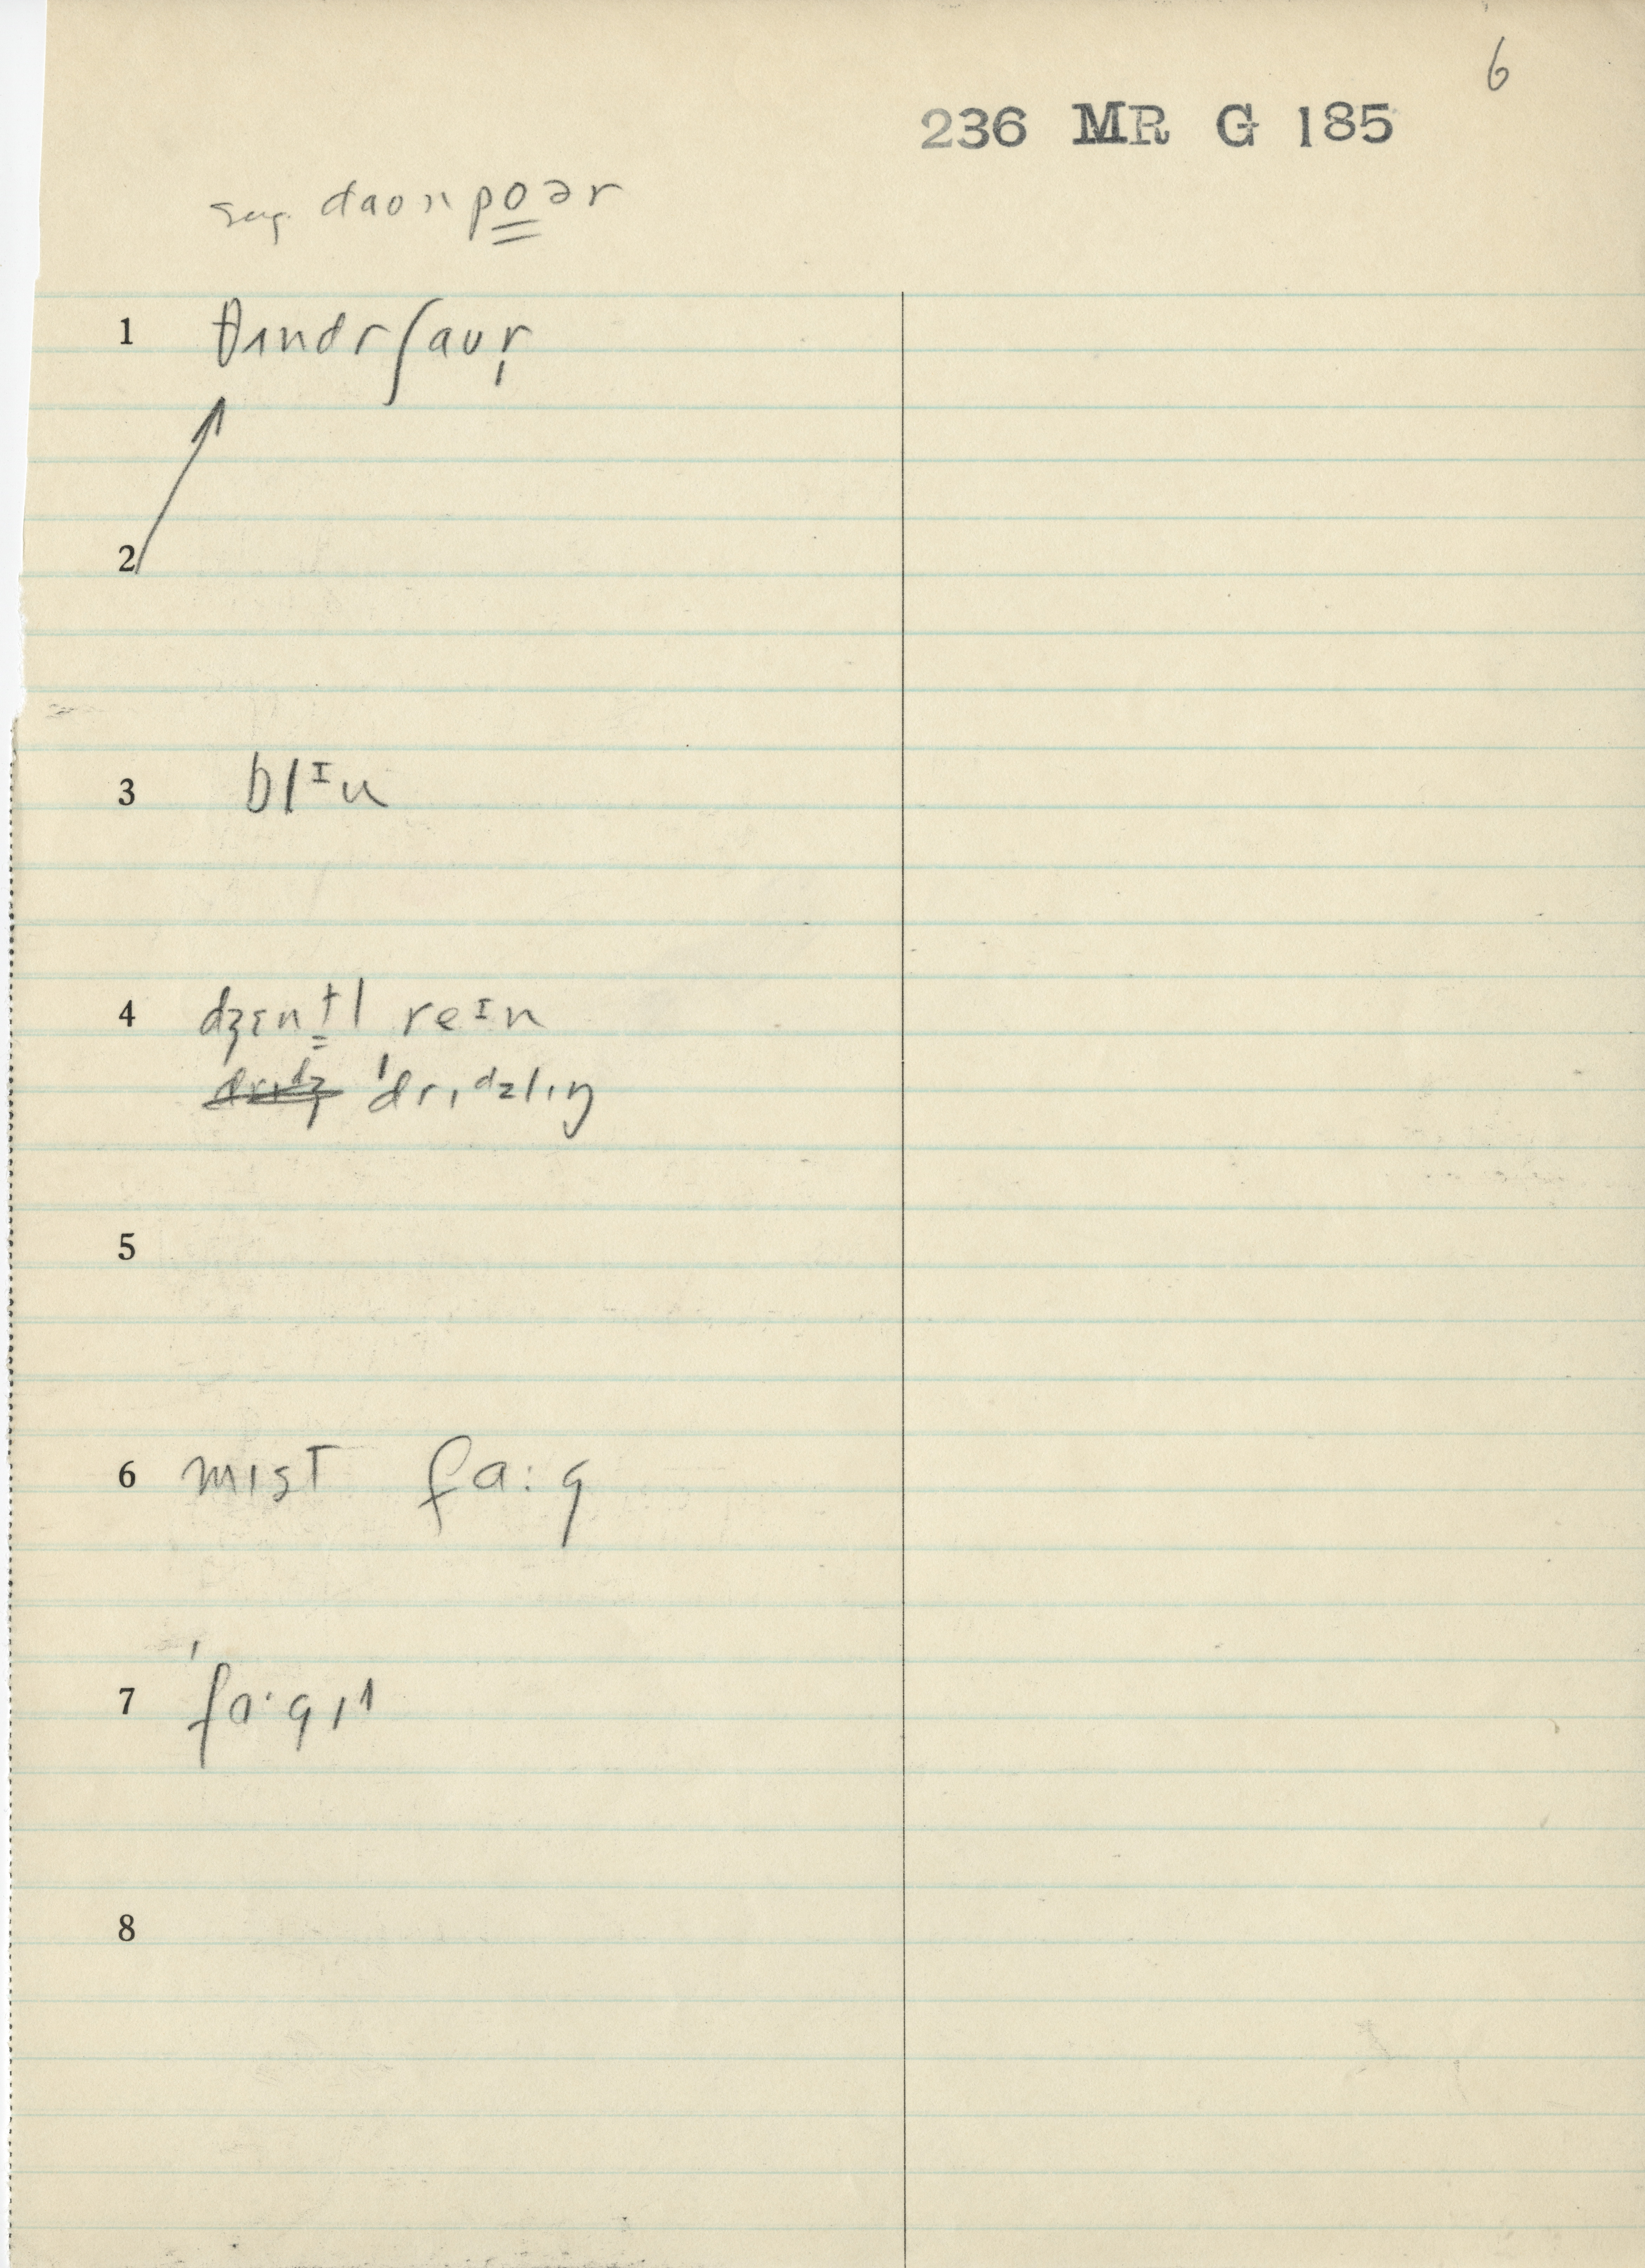 6
236 MR G 185
sug. daonpoər
1 θʌndrʃaʊr̩
2
3 blᶦu
4 dʒɛnt̬l reᶦn
ˈdrɪᵈzlɪŋ
5
6 mɪst fɑ:g
7 ˈfɑ·gɪ
8